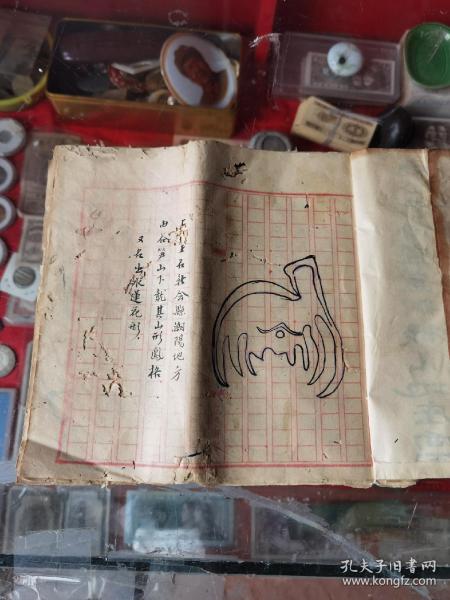 在社令縣潮陽地方
由佑笋山下龍其山形鳳格
又名出水蓮花形
孔夫子旧书网
www.kongfz.com